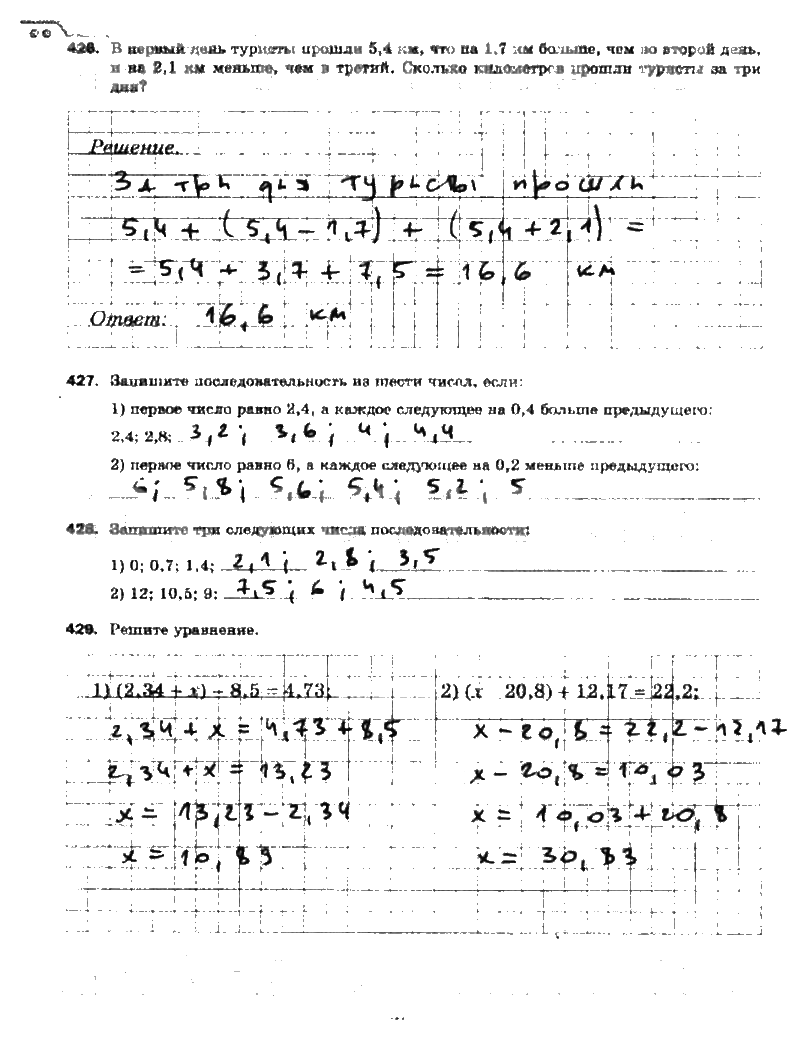 426. В первый день туристы прошли 5,4 км, что на 1,7 км больше, чем во второй день,
и на 2,1 км меньше, чем в третий. Сколько километров прошли туристы за три
дня?
Решение.
За три дня туристы прошли
5,4 + (5,4 - 1,7) + (5,4 + 2,1) =
= 5,4 + 3,7 + 7,5 = 16,6 км
Ответ: 16,6 км
427. Запишите последовательность из шести чисел, если:
1) первое число равно 2,4, а каждое следующее на 0,4 больше предыдущего:
2,4; 2,8; 3,2; 3,6; 4; 4,4
2) первое число равно 6, а каждое следующее на 0,2 меньше предыдущего:
6; 5,8; 5,6; 5,4; 5,2; 5
428. Запишите три следующих числа последовательности:
1) 0; 0,7; 1,4; 2,1; 2,8; 3,5
2) 12; 10,5; 9; 7,5; 6; 4,5
429. Решите уравнение.
1) (2,34 + x) - 8,5 = 4,73;
2,34 + x = 4,73 + 8,5
2,34 + x = 13,23
x = 13,23 - 2,34
x = 10,89
2) (x 20,8) + 12,17 = 22,2;
x - 20,8 = 22,2 - 12,17
x - 20,8 = 10,03
x = 10,03 + 20,8
x = 30,83